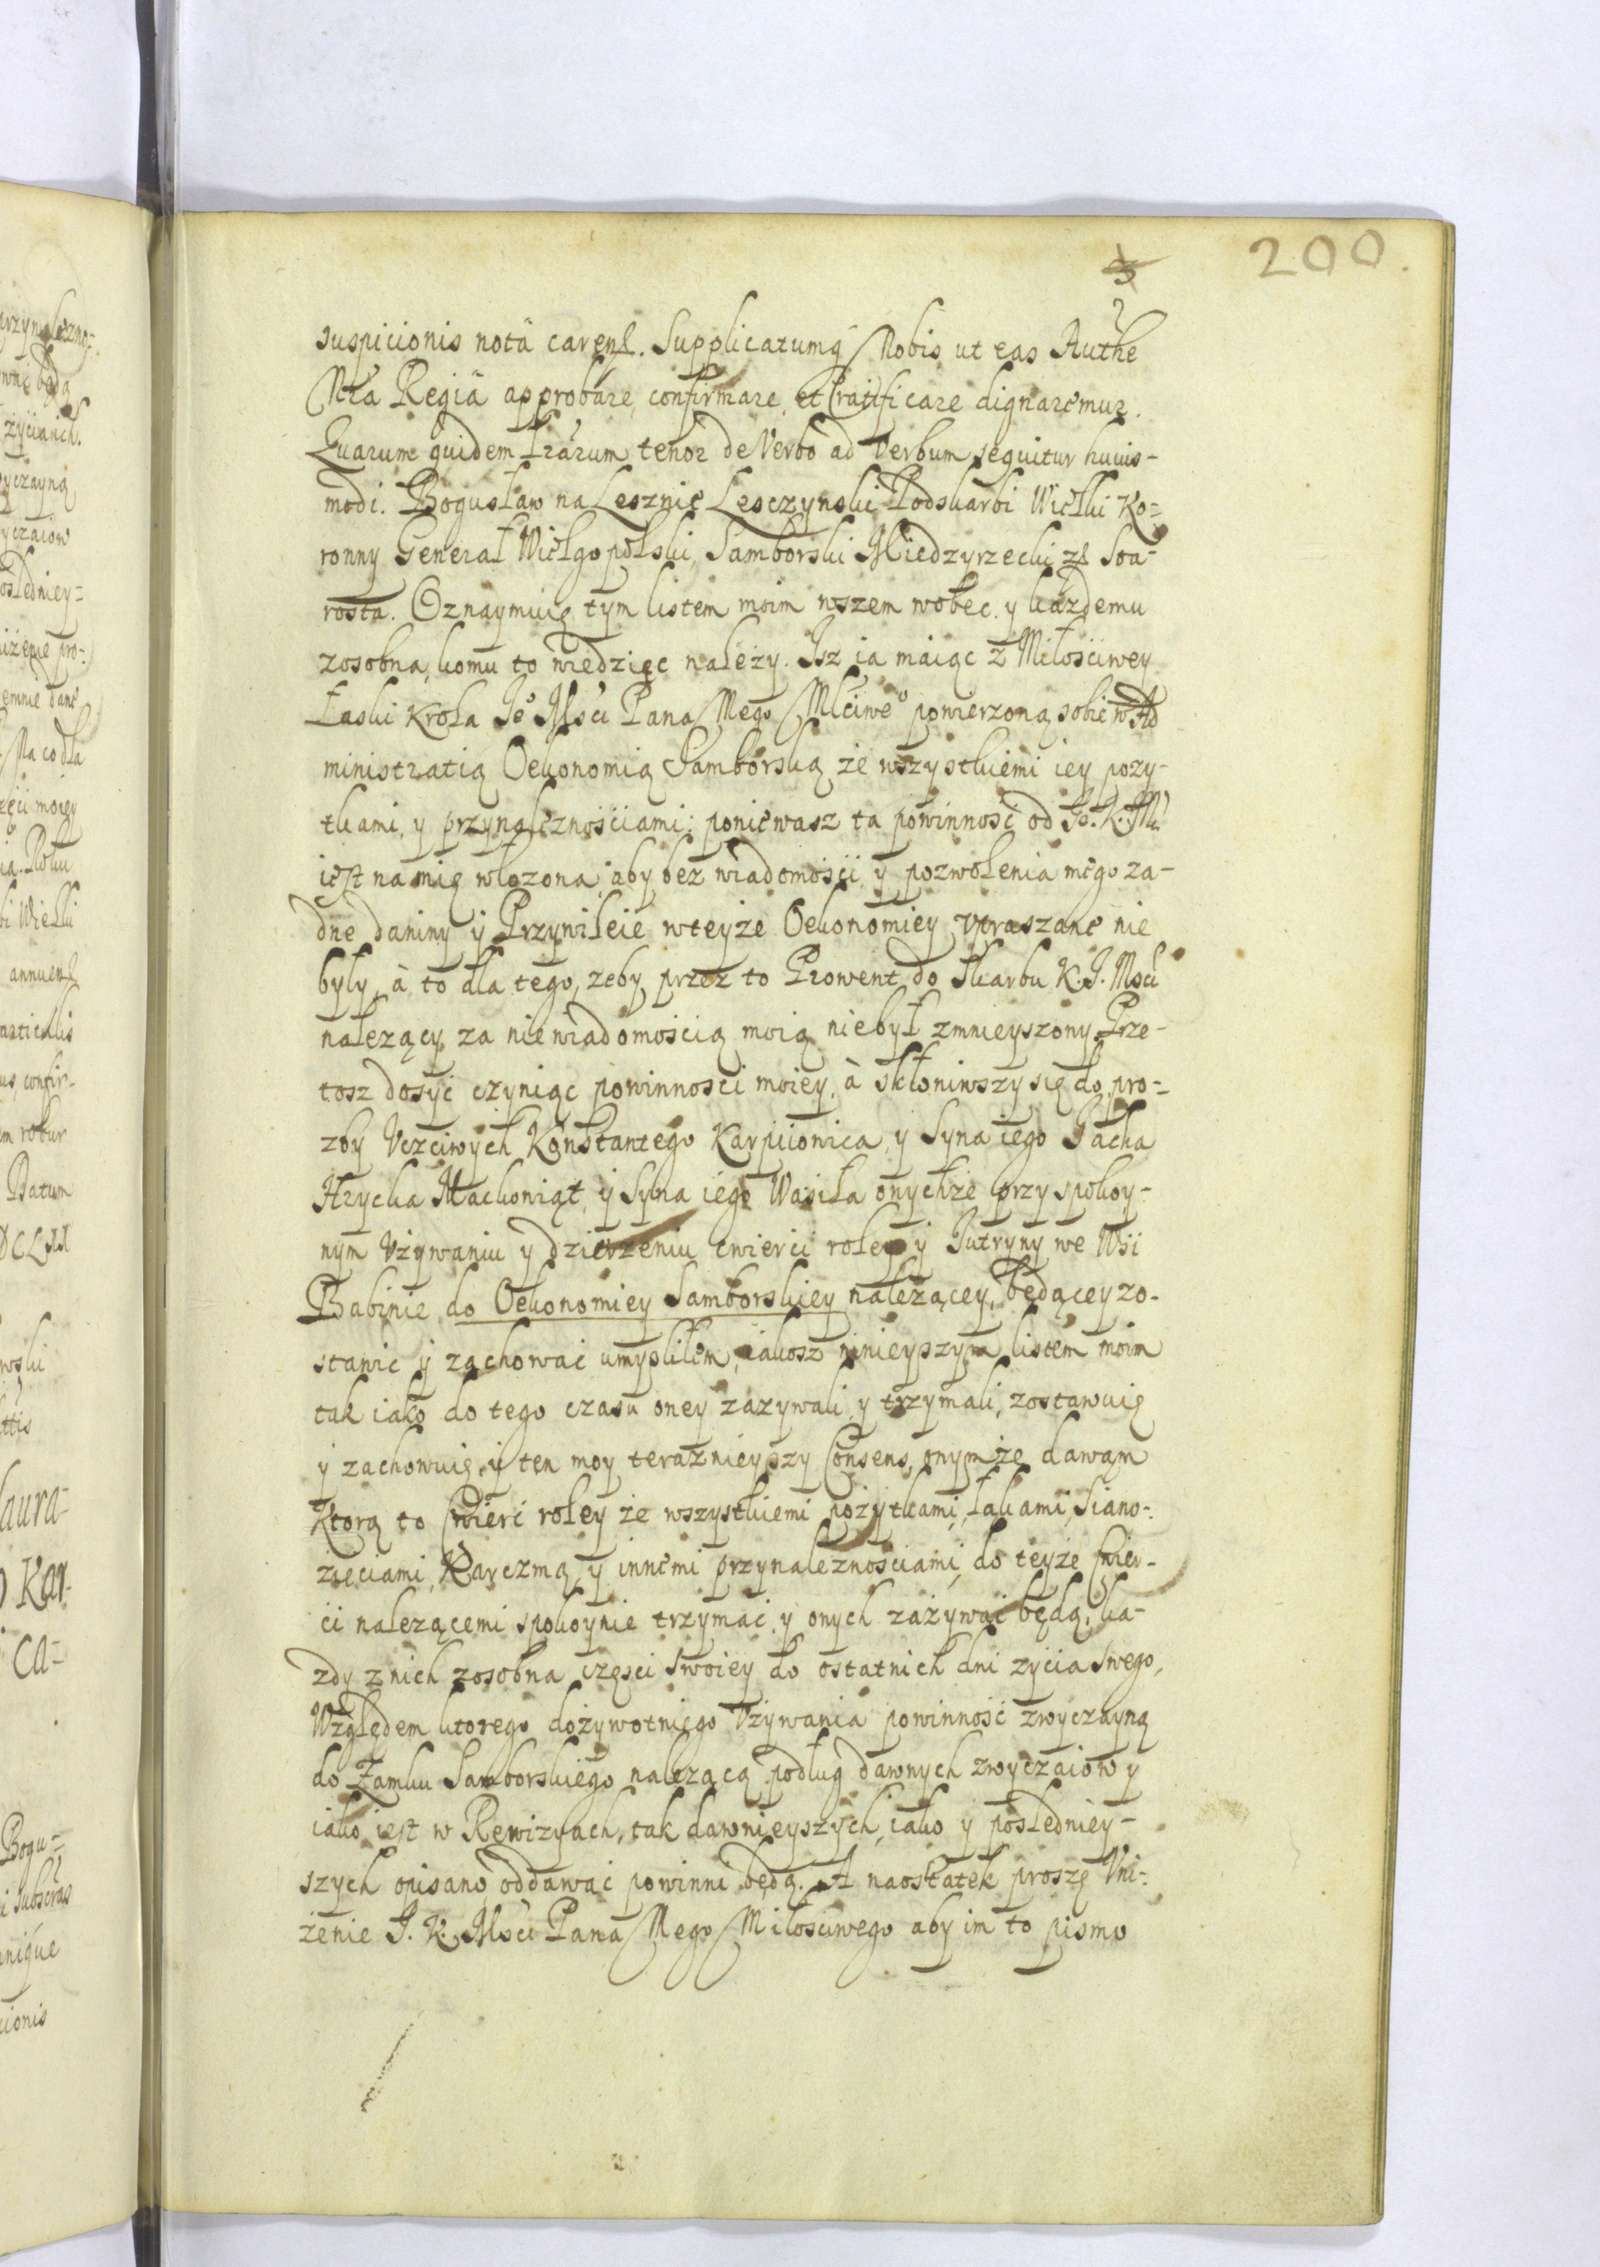 200
3
2
suspicionis notâ caren. Supplicatumq Nobis ut eas Authe
Nra Regiâ approbare, confirmare, et ratificare dignaremur.
Quarum quidem lrarum tenor de Verbo ad Verbum sequitur huius-
modi. Bogusław na Lesznie Lesczynski Podskarbi Wielki Ko-
ronny Generał Wielgopolski, Samborski Miedzyrzecki Sta-
rosta. Oznaymuię tym listem moim wszem wobec. y każdemu
zosobna, komu to wiedzięc nalezy. Isz ia maiąc z Miłosciwey
Łaski Krola Jº Msci Pana Mego Mlciweº powierzoną sobie w Ad
ministratią Oekonomią Samborską, ze wszystkiemi iey pozy-
tkami, y przynależnościami: ponieważ ta powinność od Jº. K. M.
iest na mię włozona, aby bez wiadomości y pozwolenia mego za-
dne daniny y Przywileie wteyże Oekonomiey vpraszane nie
były, à to dla tego, zeby przez to Prowent do Skarbu K. J. Msci
nalezący, za niewiadomością moią niebył zmnieyszony. Prze-
tosz dosyć czyniąc powinnosci moiey, à skłoniwszy się do pro-
zby Vczciwych Konstantego Karpiionica, y Syna iego Jacka
Hrycka Mackoniąt, y Syna iego Wasila onychże przy spokoy-
nym Vżywaniu y dzierzeniu cwierci roley y Jutryny we Wsi
Babinie do Oekonomiey Samborskiey należącey, będącey zo-
stawic y zachować umyslilem, iakosz ninieyszym listem moim
tak iako do tego czasu oney zazywali, y trzymali, zostawuię
y zachowuię, y ten moy teraznieyszy Consens, onymże dawam
Ktorą to Cwierć roley ze wszystkiemi pożytkami, łąkami, Siano-
zęciami, Karczmą, y innemi przynależnosciami, do teyże Cwier-
ci nalezącemi spokoynie trzymać, y onych zażywać będą, ka-
zdy z nich zosobna części swoiey do ostatnich dni zycia swego,
Względem ktorego dożywotniego Vżywania powinność zwyczayną
do Zamku Samborskiego nalezącą, podług dawnych zwyczaiow y
iako iest w Rewizyach, tak dawnieyszych, iako y posledniey-
szych opisano oddawać powinni będą. A naostatek proszę Vni-
żenie J. K. Msci Pana Mego Miłosciwego aby im to pismo